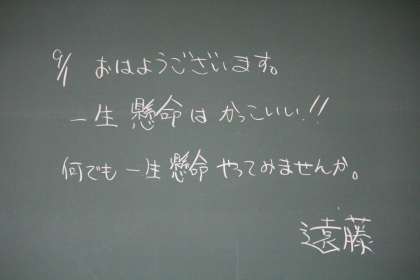 9/1 おはようございます。
一生懸命はかっこいい!!
何でも一生懸命やってみませんか。
遠藤